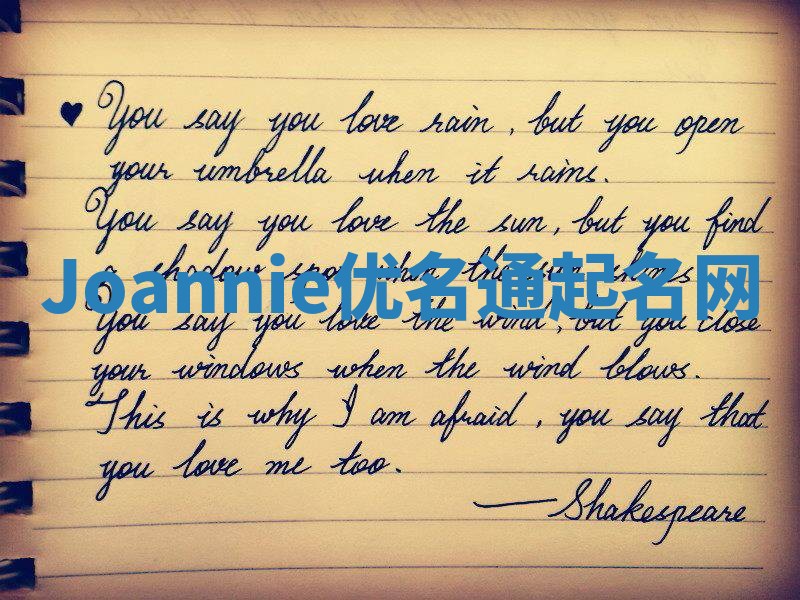 ♥ You say you love rain, but you open
your umbrella when it rains.
You say you love the sun, but you find
a shadow spot when the sun shines
Joannie优名通起名网
You say you love the wind, but you close
your windows when the wind blows.
This is why I am afraid, you say that
you love me too.
—Shakespeare